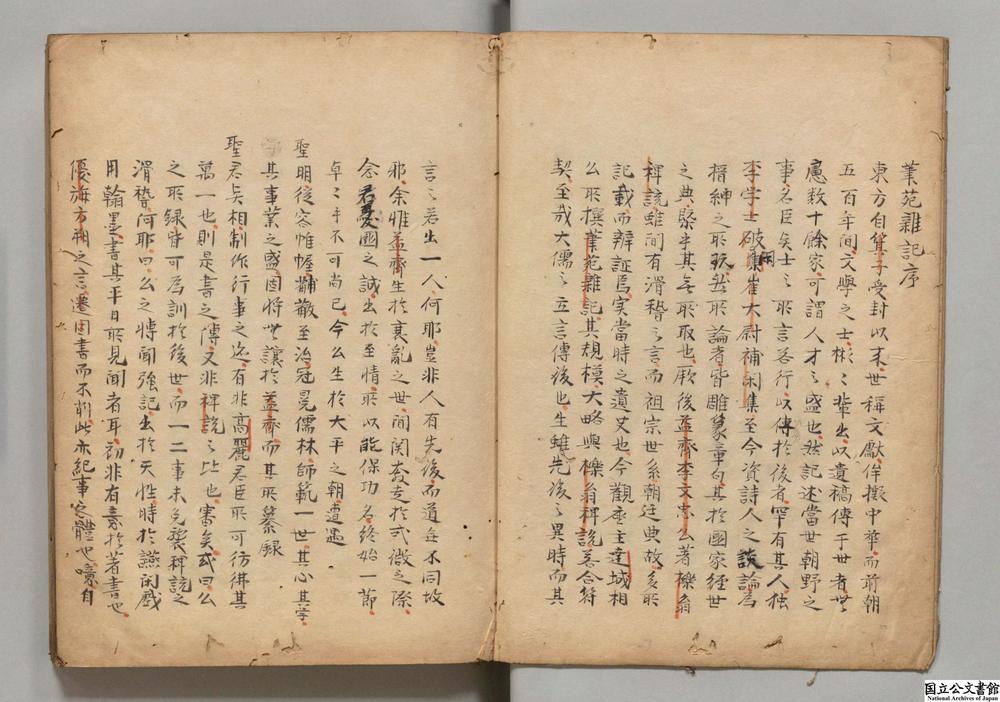 筆苑雜記序
東方自箕子受封以来世稱文獻侔擬中華而前朝
五百年間文學之士彬〻輩出以遺稿傳于世者無
慮数十餘家可謂人才之盛也然記述當世朝野之
事名臣矣士之所言若行以傳於後者罕有其人独
李学士破閑集崔大尉補闲集至今資詩人之談論為
搢紳之所玩然所論者皆雕篆章句其於國家經世
之典槩乎其無所取也厥後益齋李文忠公著櫟翁
稗說雖间有滑稽之言而祖宗世系朝廷典故多所
記載而辯証焉实當時之遺史也今觀座主達城相
公所撰筆苑雜記其規模大略與櫟翁稗說若合符
契至哉大儒之立言傳後也生雖先後之異時而其
言之若出一人何耶豈非人有先後而道無不同故
邪余惟益齋生於衰亂之世間関奏走於式微之際
念君憂國之誠出於至情所以能保功名終始一節
卓〻乎不可尚已今公生於大平之朝遭遇
聖明従容帷幄黼黻至治冠冕儒林師範一世其心其学
其事業之盛固將無讓於益齋而其所纂録
聖君矣相制作行事之迹有非高麗君臣所可彷彿其
萬一也則是書之傳又非稗說之比也審矣或曰公
之所録皆可為訓於後世而一二事未免襲稗說之
滑稽何耶曰公之博聞強記出於天性時於讌闲戲
用翰墨書其平日所見聞者耳初非有意於著書也
優旃方朔之言遷固書而不削此亦紀事之體也噫自
国立公文書館
National Archives of Japan